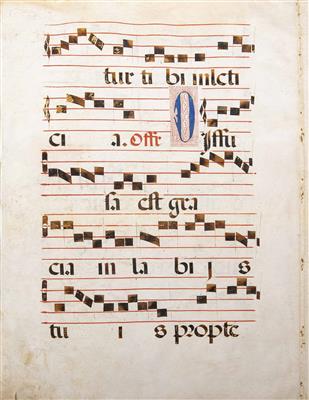 tur ti bi iniusti
ci a. Offr. Diffu
sa est gra
cia in la bi j s
tu i s propte